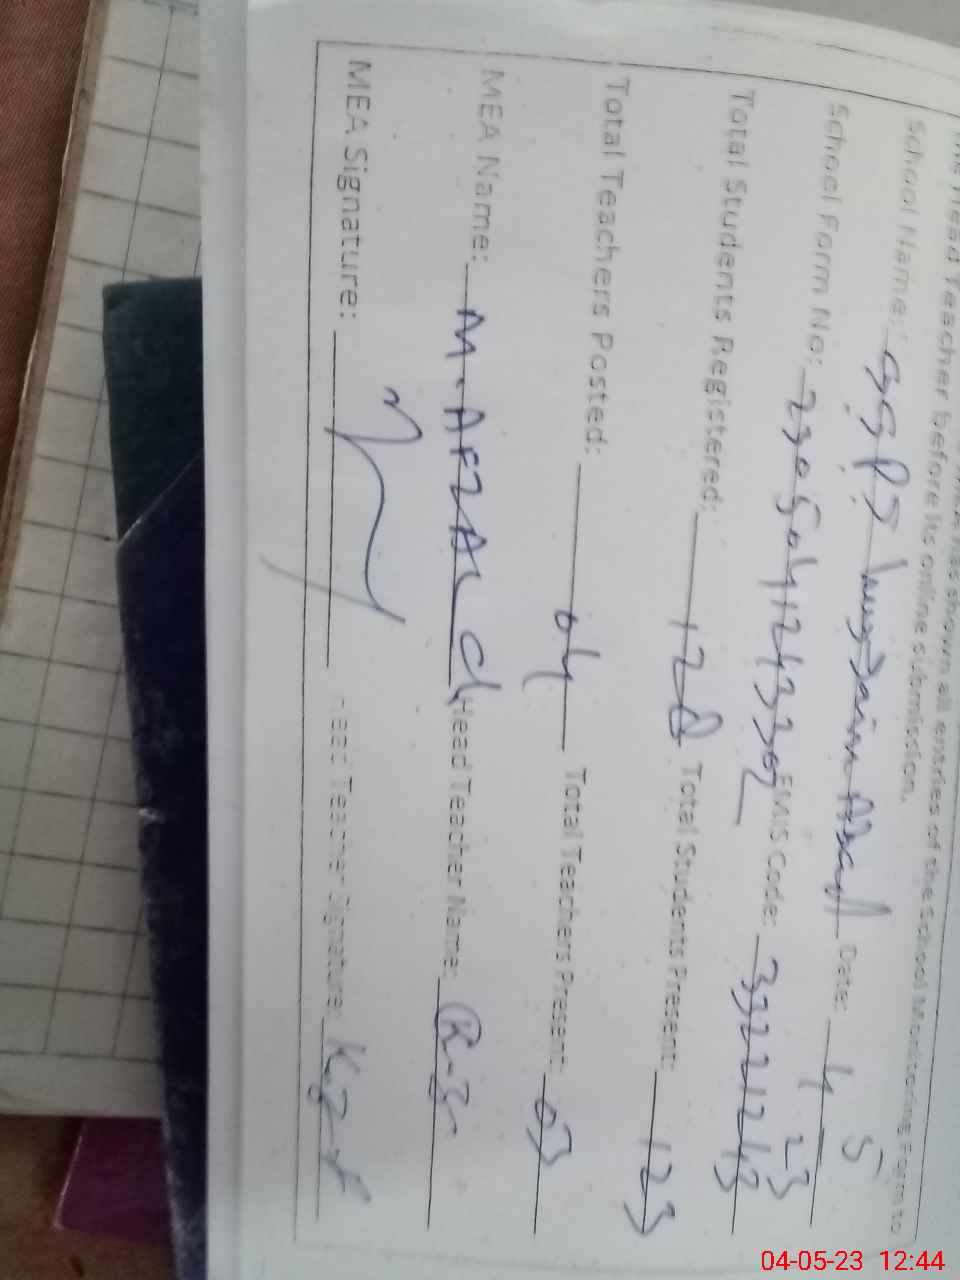 has shown all entries of the School Monitoring Form to
the Head Teacher before its online submission.
School Name: GGPS Date: 4 5 23
School Form No: EMIS Code: 33221243
Total Students Registered: 128 Total Students Present: 123
Total Teachers Posted: 04 Total Teachers Present: 03
MEA Name: M. AFZAL Ch Head Teacher Name:
MEA Signature: Head Teacher Signature:
04-05-23 12:44